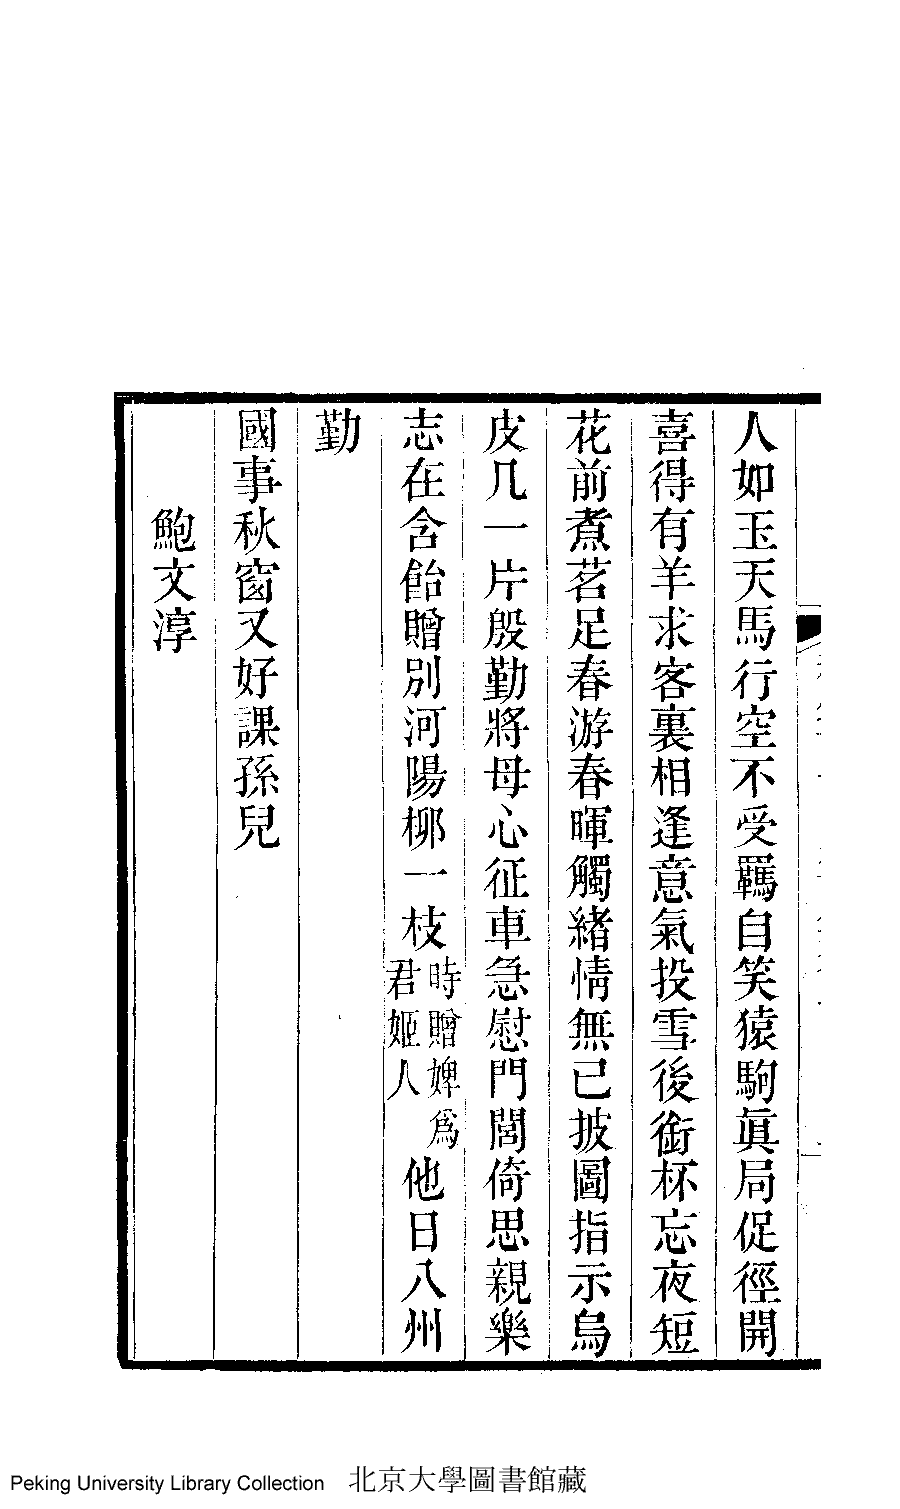 人如玉天馬行空不受羈自笑猿駒眞局促徑開
喜得有羊求客裏相逢意氣投雪後銜杯忘夜短
花前煮茗足春游春暉觸緒情無已披圖指示烏
皮几一片殷勤將母心征車急慰門閭倚思親樂
志在含飴贈別河陽柳一枝時贈婢爲君姬人他日八州
勤
國事秋窗又好課孫兒
鮑文淳
Peking University Library Collection 北京大學圖書館藏